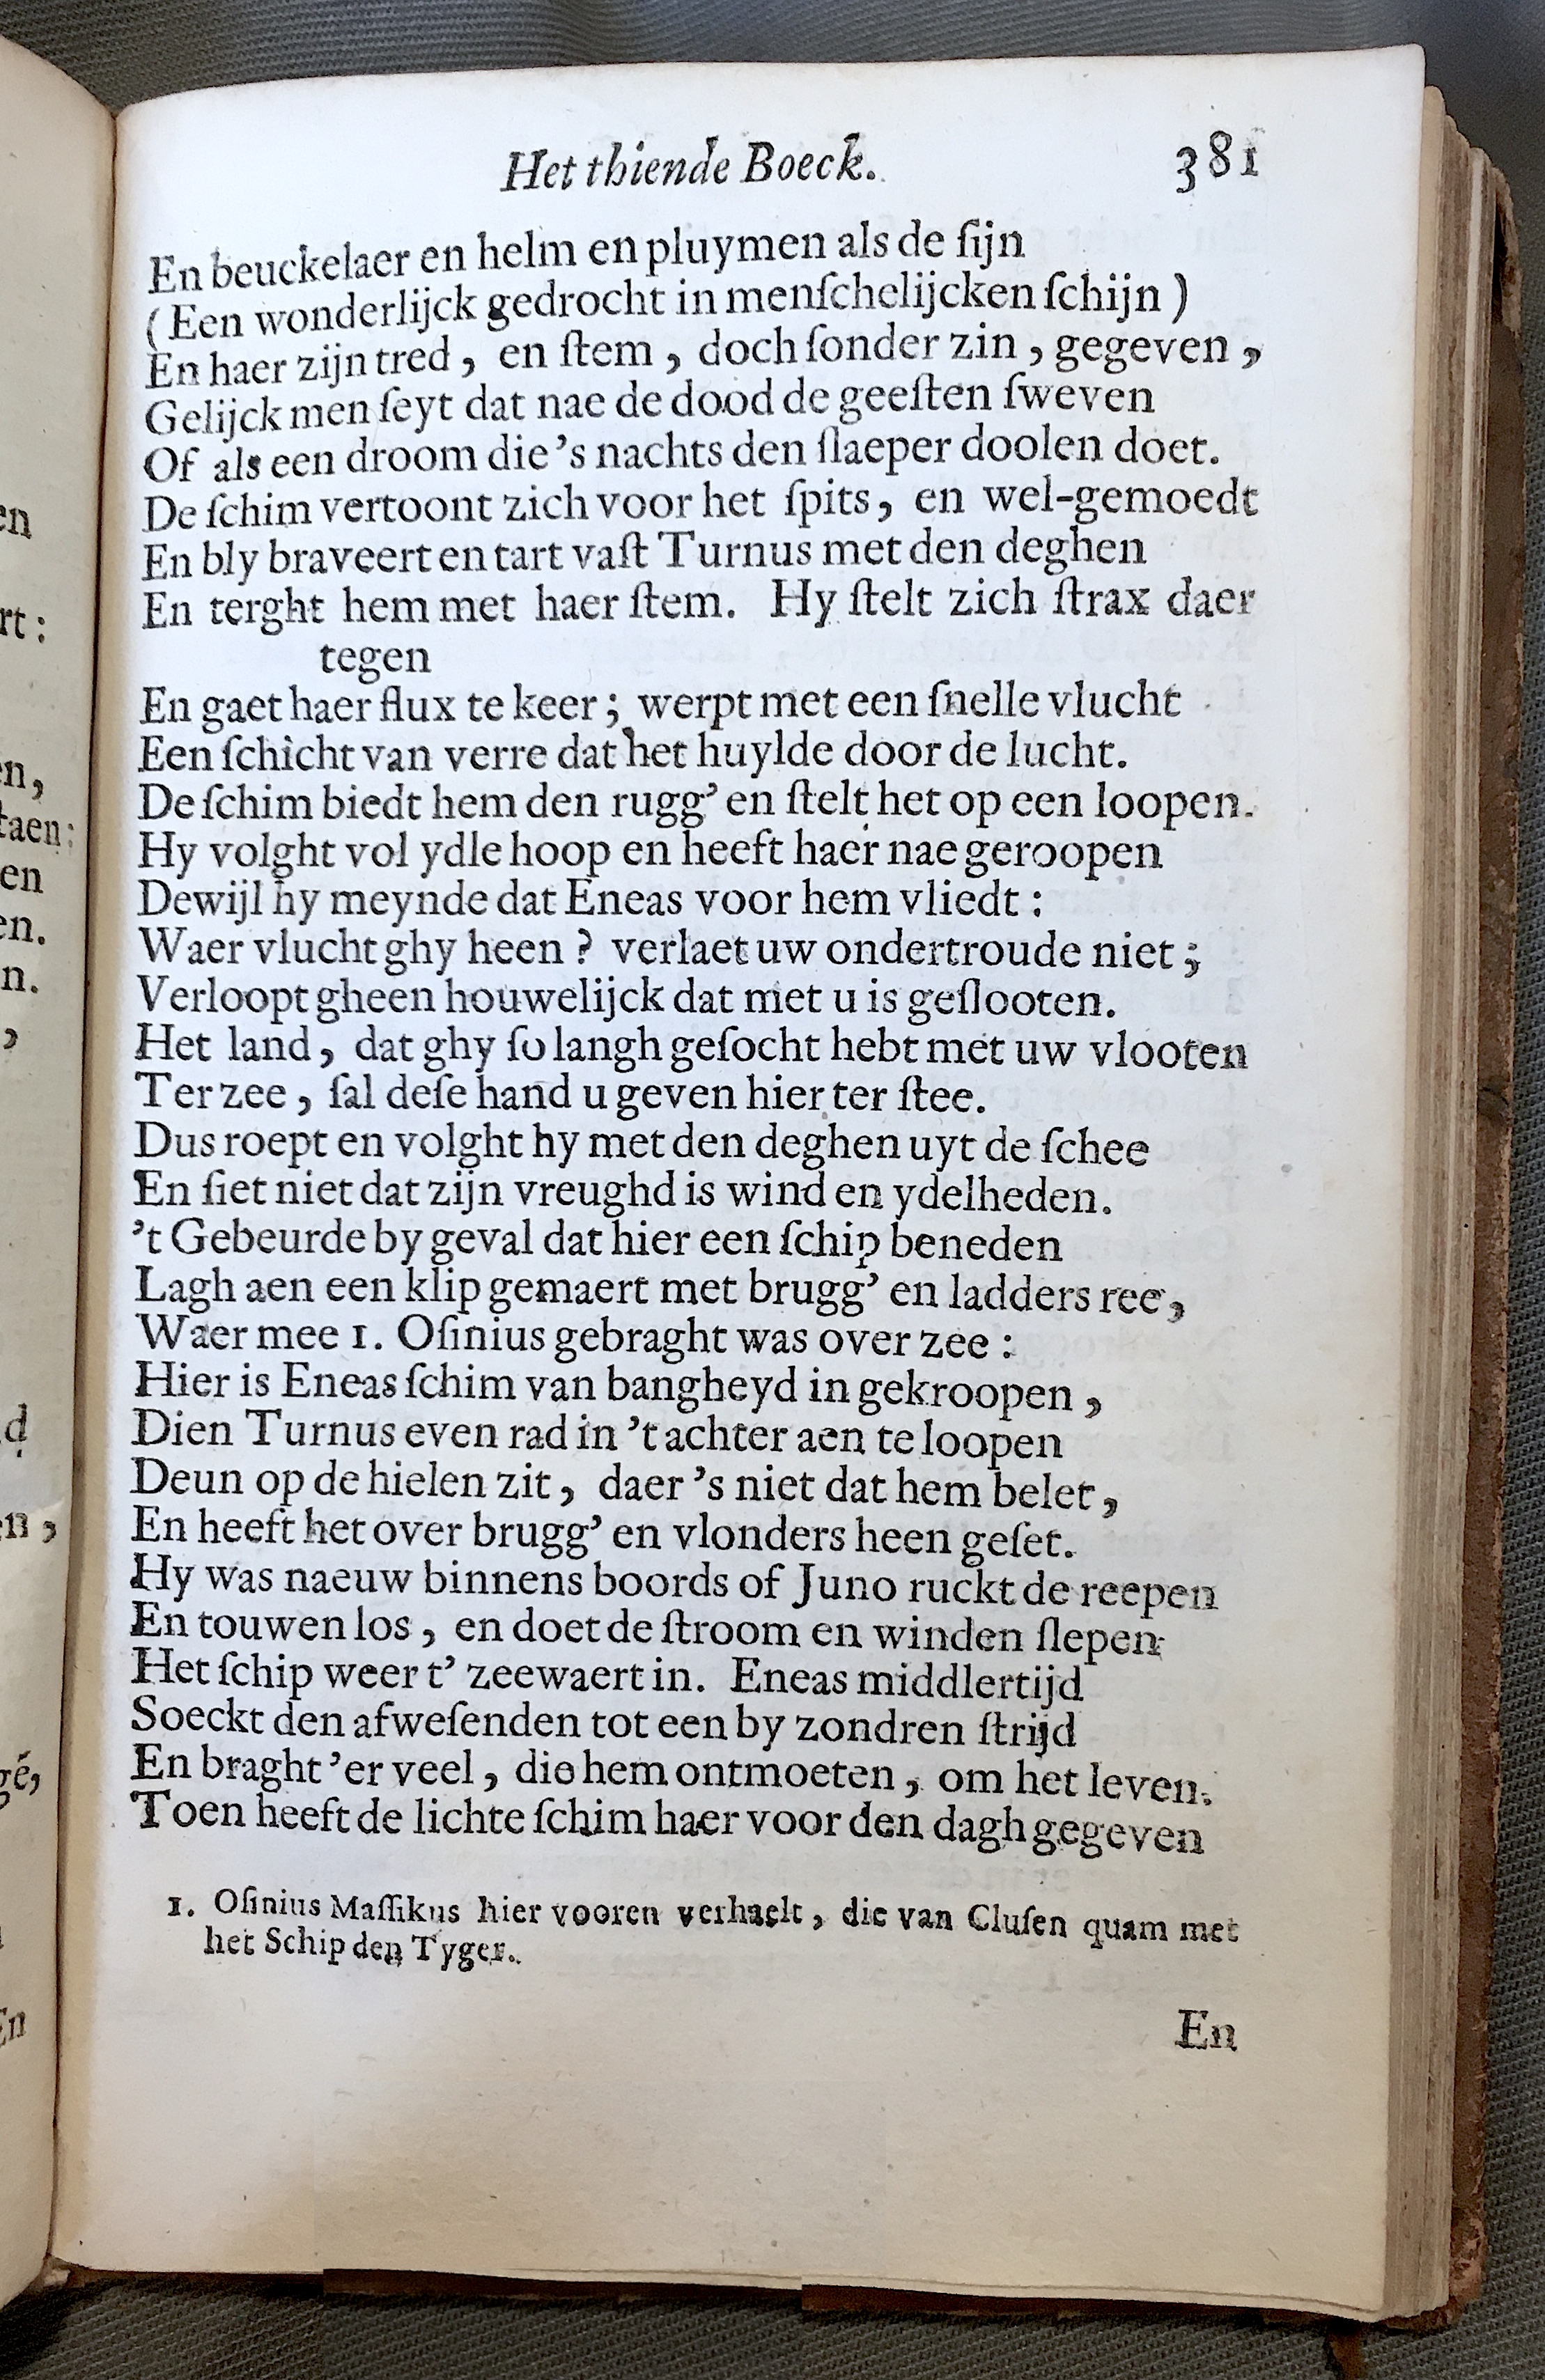 Het thiende Boeck. 381
En beuckelaer en helm en pluymen als de ſijn
(Een wonderlijck gedrocht in menſchelijcken ſchijn)
En haer zijn tred, en ſtem, doch ſonder zin, gegeven,
Gelijck men ſeyt dat nae de dood de geeſten ſweven
Of als een droom die 's nachts den ſlaeper doolen doet.
De ſchim vertoont zich voor het ſpits, en wel-gemoedt
En bly braveert en tart vaſt Turnus met den deghen
En terght hem met haer ſtem. Hy ſtelt zich ſtrax daer
tegen
En gaet haer flux te keer; werpt met een ſnelle vlucht
Een ſchicht van verre dat het huylde door de lucht.
De ſchim biedt hem den rugg' en ſtelt het op een loopen.
Hy volght vol ydle hoop en heeft haer nae geroopen
Dewijl hy meynde dat Eneas voor hem vliedt:
Waer vlucht ghy heen? verlaet uw ondertroude niet;
Verloopt gheen houwelijck dat met u is geſlooten.
Het land, dat ghy ſo langh geſocht hebt met uw vlooten
Ter zee, ſal deſe hand u geven hier ter ſtee.
Dus roept en volght hy met den deghen uyt de ſchee
En ſiet niet dat zijn vreughd is wind en ydelheden.
't Gebeurde by geval dat hier een ſchip beneden
Lagh aen een klip gemaert met brugg' en ladders ree,
Waer mee 1. Oſinius gebraght was over zee:
Hier is Eneas ſchim van bangheyd in gekroopen,
Dien Turnus even rad in 't achter aen te loopen
Deun op de hielen zit, daer 's niet dat hem belet,
En heeft het over brugg' en vlonders heen geſet.
Hy was naeuw binnens boords of Juno ruckt de reepen
En touwen los, en doet de ſtroom en winden ſlepen
Het ſchip weer t' zeewaert in. Eneas middlertijd
Soeckt den afweſenden tot een by zondren ſtrijd
En braght 'er veel, die hem ontmoeten, om het leven.
Toen heeft de lichte ſchim haer voor den dagh gegeven
1. Oſinius Maſſikus hier vooren verhaelt, die van Cluſen quam met
het Schip den Tyger.
En
en
rt:
en,
taen:
en
en.
n.
,
d
en,
gé,
En